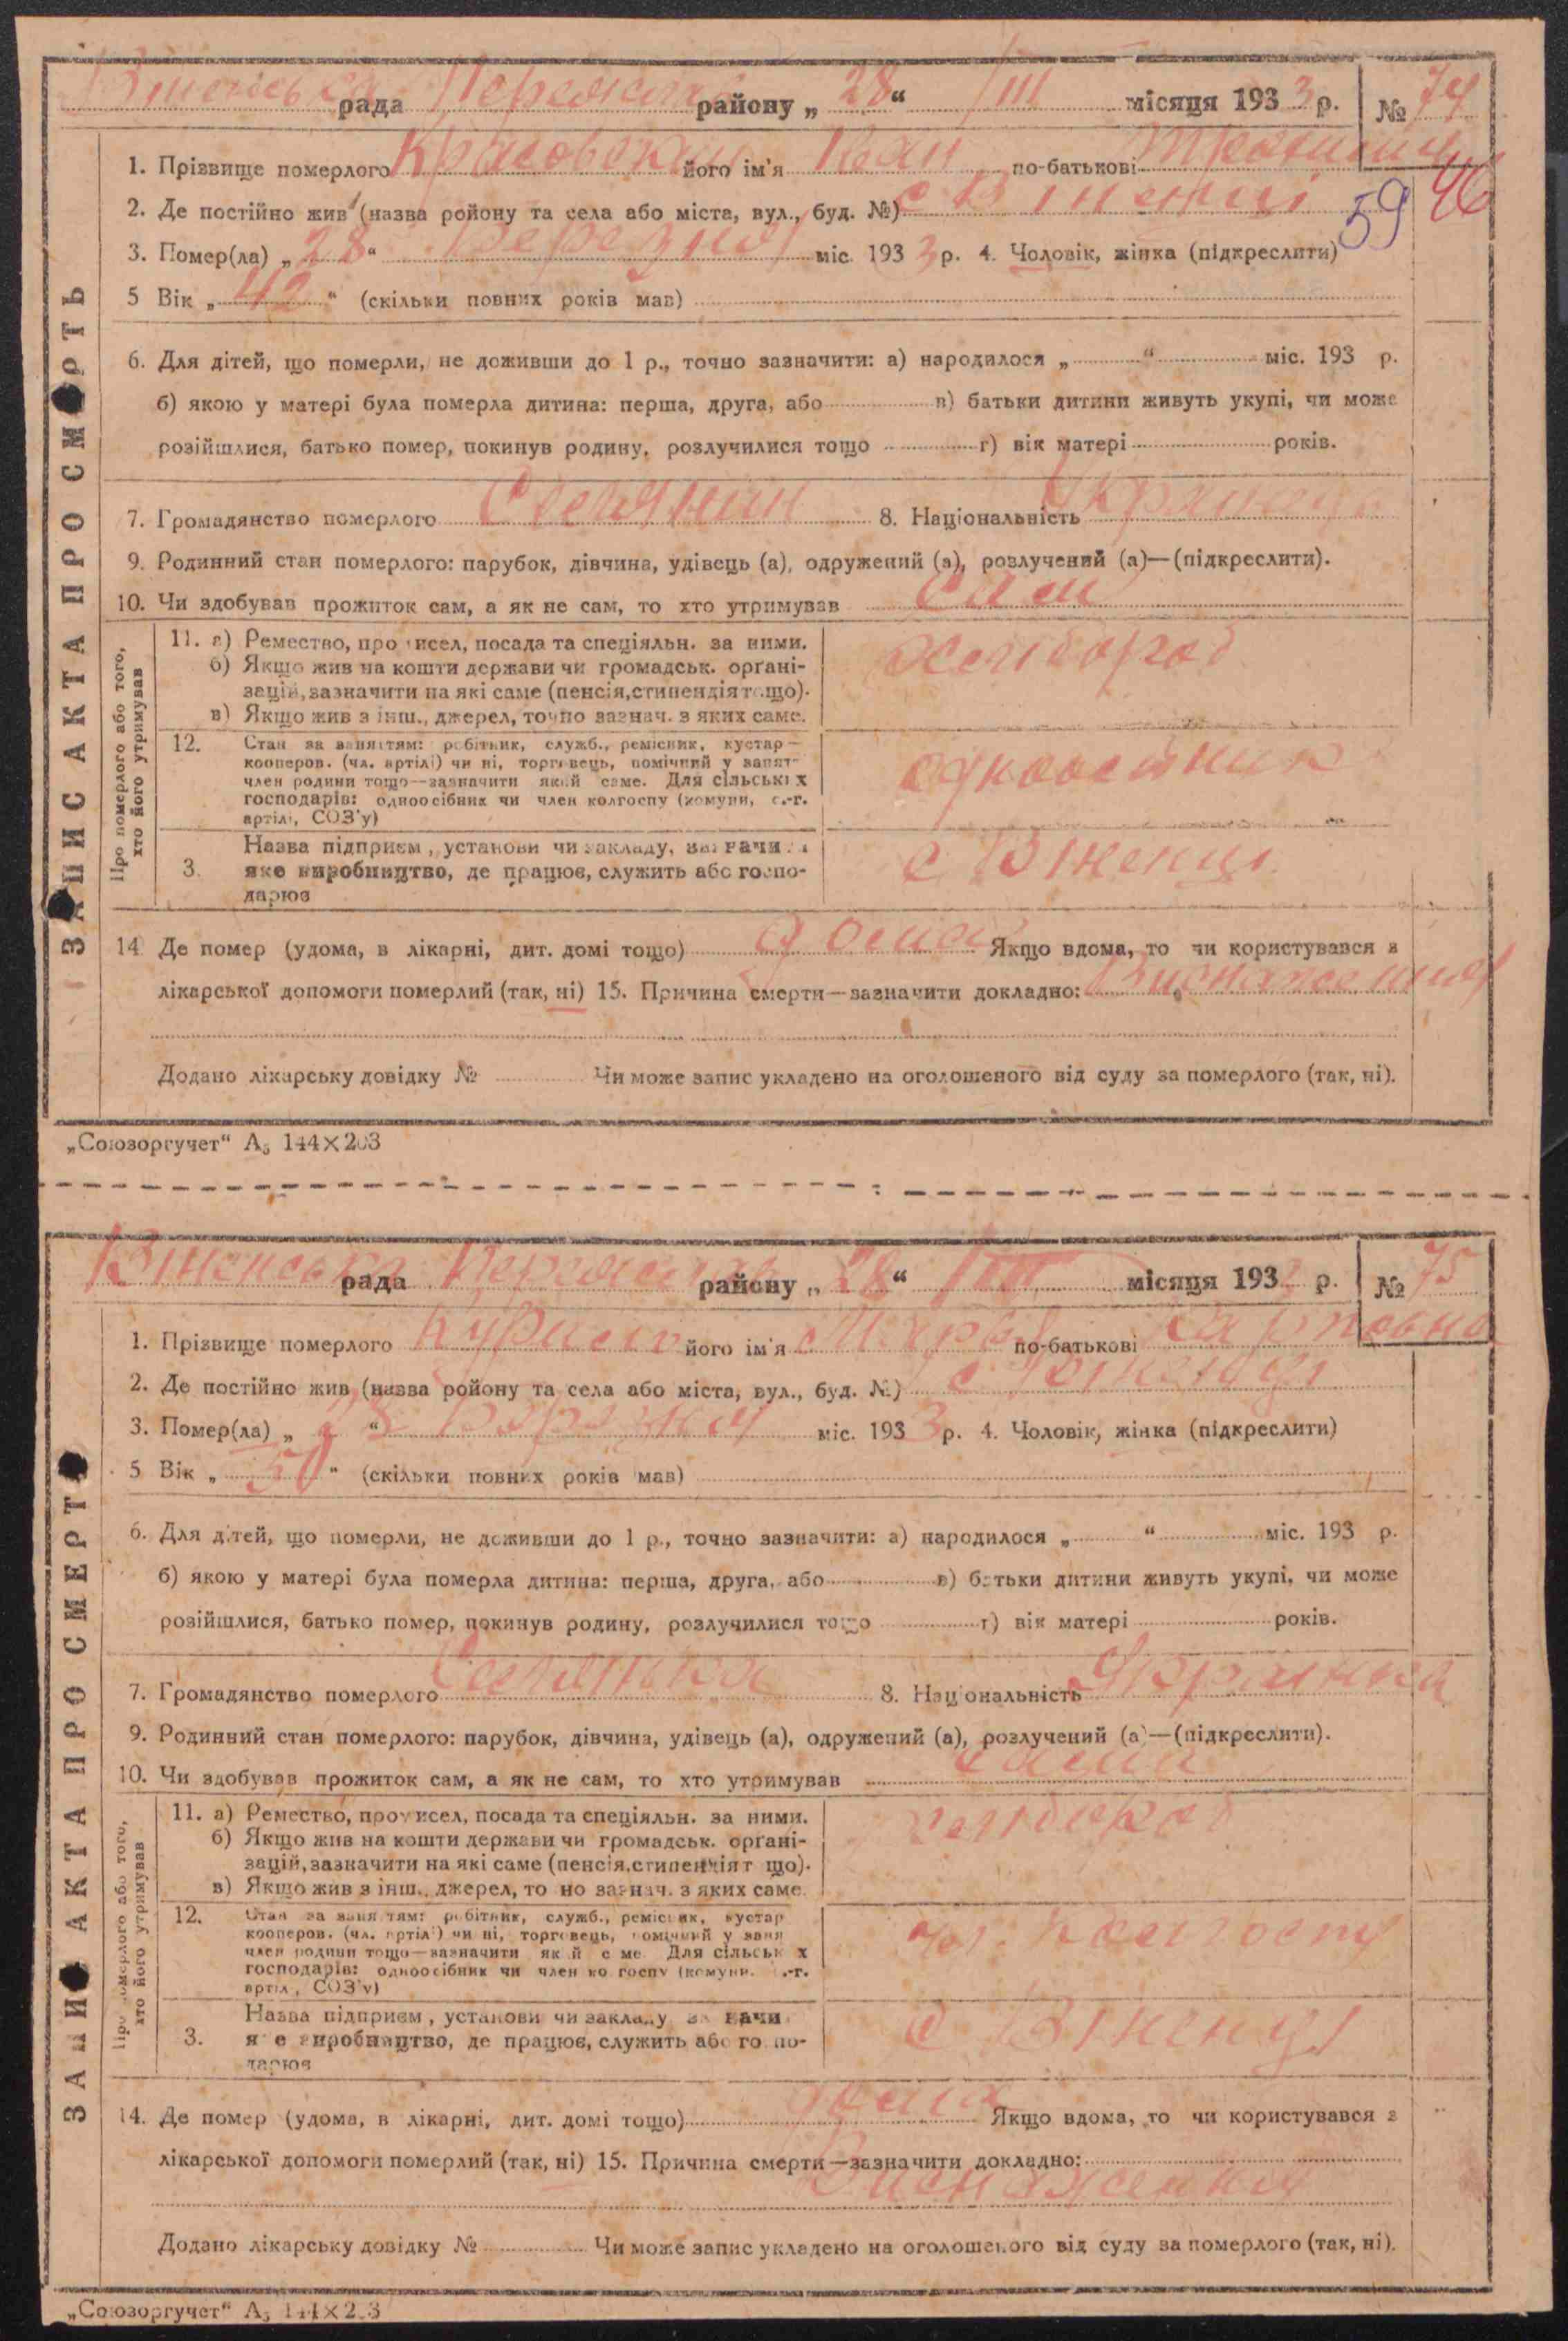 рада району „ 28 “ III місяця 1933 р. № 74
1. Прізвище померлого його ім'я Іван по-батькові
59 46
2. Де постійно жив (назва ройону та села або міста, вул., буд. №) с Віженці
3. Помер(ла) „ 28 “ Березня міс. 1933 р. 4. Чоловік, жінка (підкреслити)
5 Вік „ 42 “ (скільки повних років мав)
6. Для дітей, що померли, не доживши до 1 р., точно зазначити: а) народилося „ “ міс. 193 р.
б) якою у матері була померла дитина: перша, друга, або в) батьки дитини живуть укупі, чи може
розійшлися, батько помер, покинув родину, розлучилися тощо г) вік матері років.
7. Громадянство померлого Селянин 8. Національність Українець
9. Родинний стан померлого: парубок, дівчина, удівець (а), одружений (а), розлучений (а)—(підкреслити).
10. Чи здобував прожиток сам, а як не сам, то хто утримував сам
ЗАПИС АКТА ПРО СМЕРТЬ
Про померлого або того, хто його утримував
11. а) Ремество, про исел, посада та спеціяльн. за ними. хлібороб
б) Якщо жив на кошти держави чи громадськ. орґані-
зацій, зазначити на які саме (пенсія, стипендія тощо).
в) Якщо жив з інш., джерел, точно зазнач. з яких саме.
12. Стан за заняттям: робітник, служб., ремісник, кустар— одноосібник
кооперов. (чл. артілі) чи ні, торговець, помічний у занят-
член родини тощо—зазначити який саме. Для сільських
господарів: одноосібник чи член колгоспу (комуни, с.-г.
артілі, СОЗ'у)
Назва підприєм , установи чи закладу, зазначи
3. яке виробництво, де працює, служить або госпо- с Віженці
дарює
14 Де помер (удома, в лікарні, дит. домі тощо) дома Якщо вдома, то чи користувався з
лікарської допомоги померлий (так, ні) 15. Причина смерти—зазначити докладно: Виснаження
Додано лікарську довідку № Чи може запис укладено на оголошеного від суду за померлого (так, ні).
„Союзоргучет“ А₅ 144×203
рада району „ 28 “ III місяця 193 р. № 75
1. Прізвище померлого його ім'я Марія по-батькові Карповна
2. Де постійно жив (назва ройону та села або міста, вул., буд. №) с Віженці
3. Помер(ла) „ 28 “ Березня міс. 1933 р. 4. Чоловік, жінка (підкреслити)
5 Вік „ 50 “ (скільки повних років мав)
6. Для дітей, що померли, не доживши до 1 р., точно зазначити: а) народилося „ “ міс. 193 р.
б) якою у матері була померла дитина: перша, друга, або в) батьки дитини живуть укупі, чи може
розійшлися, батько помер, покинув родину, розлучилися тощо г) вік матері років.
7. Громадянство померлого Селянка 8. Національність Українка
9. Родинний стан померлого: парубок, дівчина, удівець (а), одружений (а), розлучений (а)—(підкреслити).
10. Чи здобував прожиток сам, а як не сам, то хто утримував сама
ЗАПИС АКТА ПРО СМЕРТЬ
Про померлого або того, хто його утримував
11. а) Ремество, промисел, посада та спеціяльн. за ними. хлібороб
б) Якщо жив на кошти держави чи громадськ. орґані-
зацій, зазначити на які саме (пенсія, стипендія т що).
в) Якщо жив з інш., джерел, то но зазнач. з яких саме.
12. Стан за заняттям: робітник, служб., ремісник, кустар чл. колгоспу
кооперов. (чл. артілі) чи ні, торговець, помічний у заня
член родини тощо—зазначити який саме Для сільськ х
господарів: одноосібник чи член колгоспу (комуни. с.-г.
артіл, СОЗ'у)
Назва підприєм , установи чи закладу зазначи
3. яке виробництво, де працює, служить або госпо- с Віженці
дарює
14. Де помер (удома, в лікарні, дит. домі тощо) дома Якщо вдома, то чи користувався з
лікарської допомоги померлий (так, ні) 15. Причина смерти—зазначити докладно:
Виснаження
Додано лікарську довідку № Чи може запис укладено на оголошеного від суду за померлого (так, ні).
„Союзоргучет“ А₅ 144×203